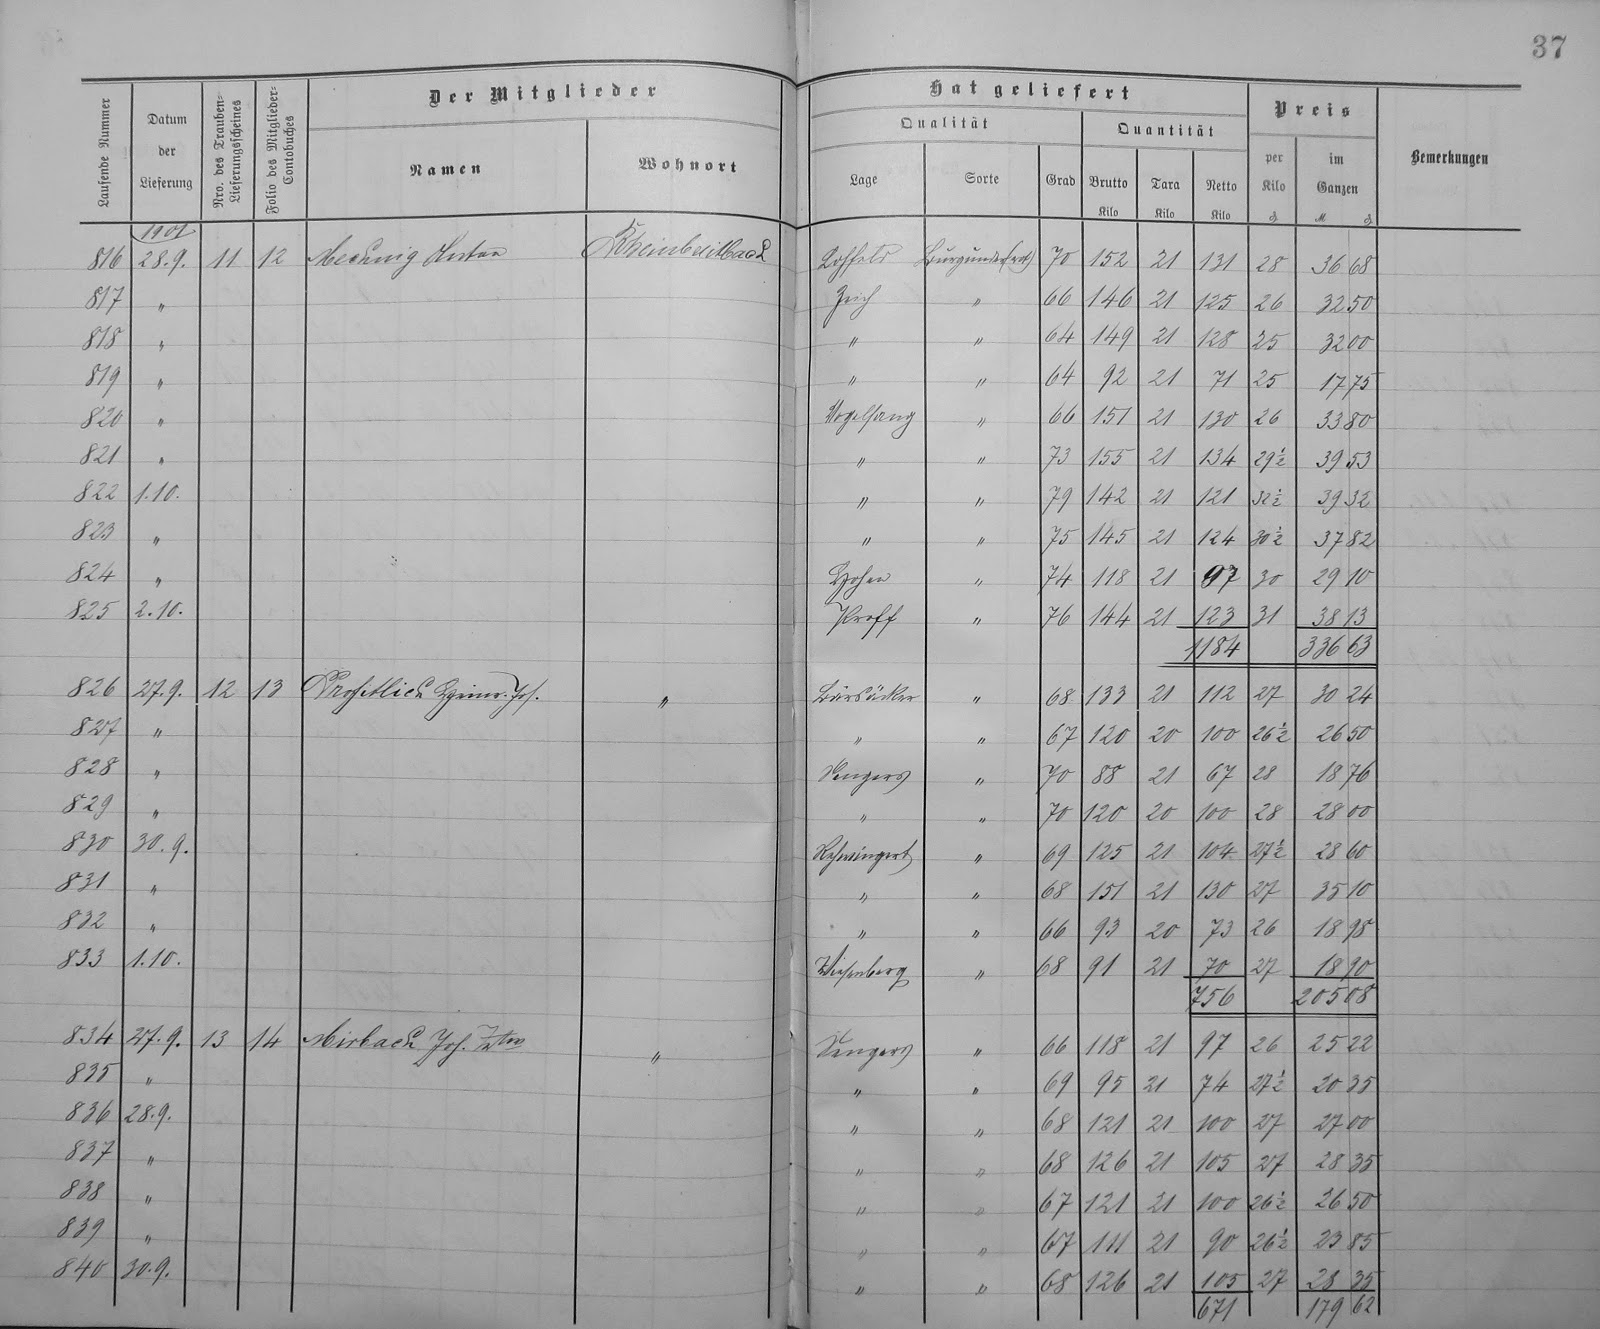 37
Der Mitglieder
Hat geliefert
Laufende Nummer
Datum der Lieferung
Nro. des Trauben-Lieferungsscheines
Folio des Mitglieder-Contobuches
Namen
Wohnort
Qualität
Quantität
Preis
Bemerkungen
Lage
Sorte
Grad
Brutto Kilo
Tara Kilo
Netto Kilo
per Kilo ₰
im Ganzen ℳ ₰
1901
816 28.9. 11 12 Mechnig Anton Rheinbreitbach Burgunder(rot) 70 152 21 131 28 36 68
817 " " 66 146 21 125 26 32 50
818 " " " 64 149 21 128 25 32 00
819 " " " 64 92 21 71 25 17 75
820 " Vogelsang " 66 151 21 130 26 33 80
821 " " " 73 155 21 134 29½ 39 53
822 1.10. " " 79 142 21 121 32½ 39 32
823 " " " 75 145 21 124 30½ 37 82
824 " Hohen " 74 118 21 97 30 29 10
825 2.10. " 76 144 21 123 31 38 13
1184 336 63
826 27.9. 12 13 Profitlich Heinr. Jos. " " 68 133 21 112 27 30 24
827 " " " 67 120 20 100 26½ 26 50
828 " Sengers " 70 88 21 67 28 18 76
829 " " " 70 120 20 100 28 28 00
830 30.9. Rehwingert " 69 125 21 104 27½ 28 60
831 " " " 68 151 21 130 27 35 10
832 " " " 66 93 20 73 26 18 98
833 1.10. Wiesenberg " 68 91 21 70 27 18 90
756 205 08
834 27.9. 13 14 Mirbach Jos. " Sengers " 66 118 21 97 26 25 22
835 " " " 69 95 21 74 27½ 20 35
836 28.9. " " 68 121 21 100 27 27 00
837 " " " 68 126 21 105 27 28 35
838 " " " 67 121 21 100 26½ 26 50
839 " " " 67 111 21 90 26½ 23 85
840 30.9. " " 68 126 21 105 27 28 35
671 179 62